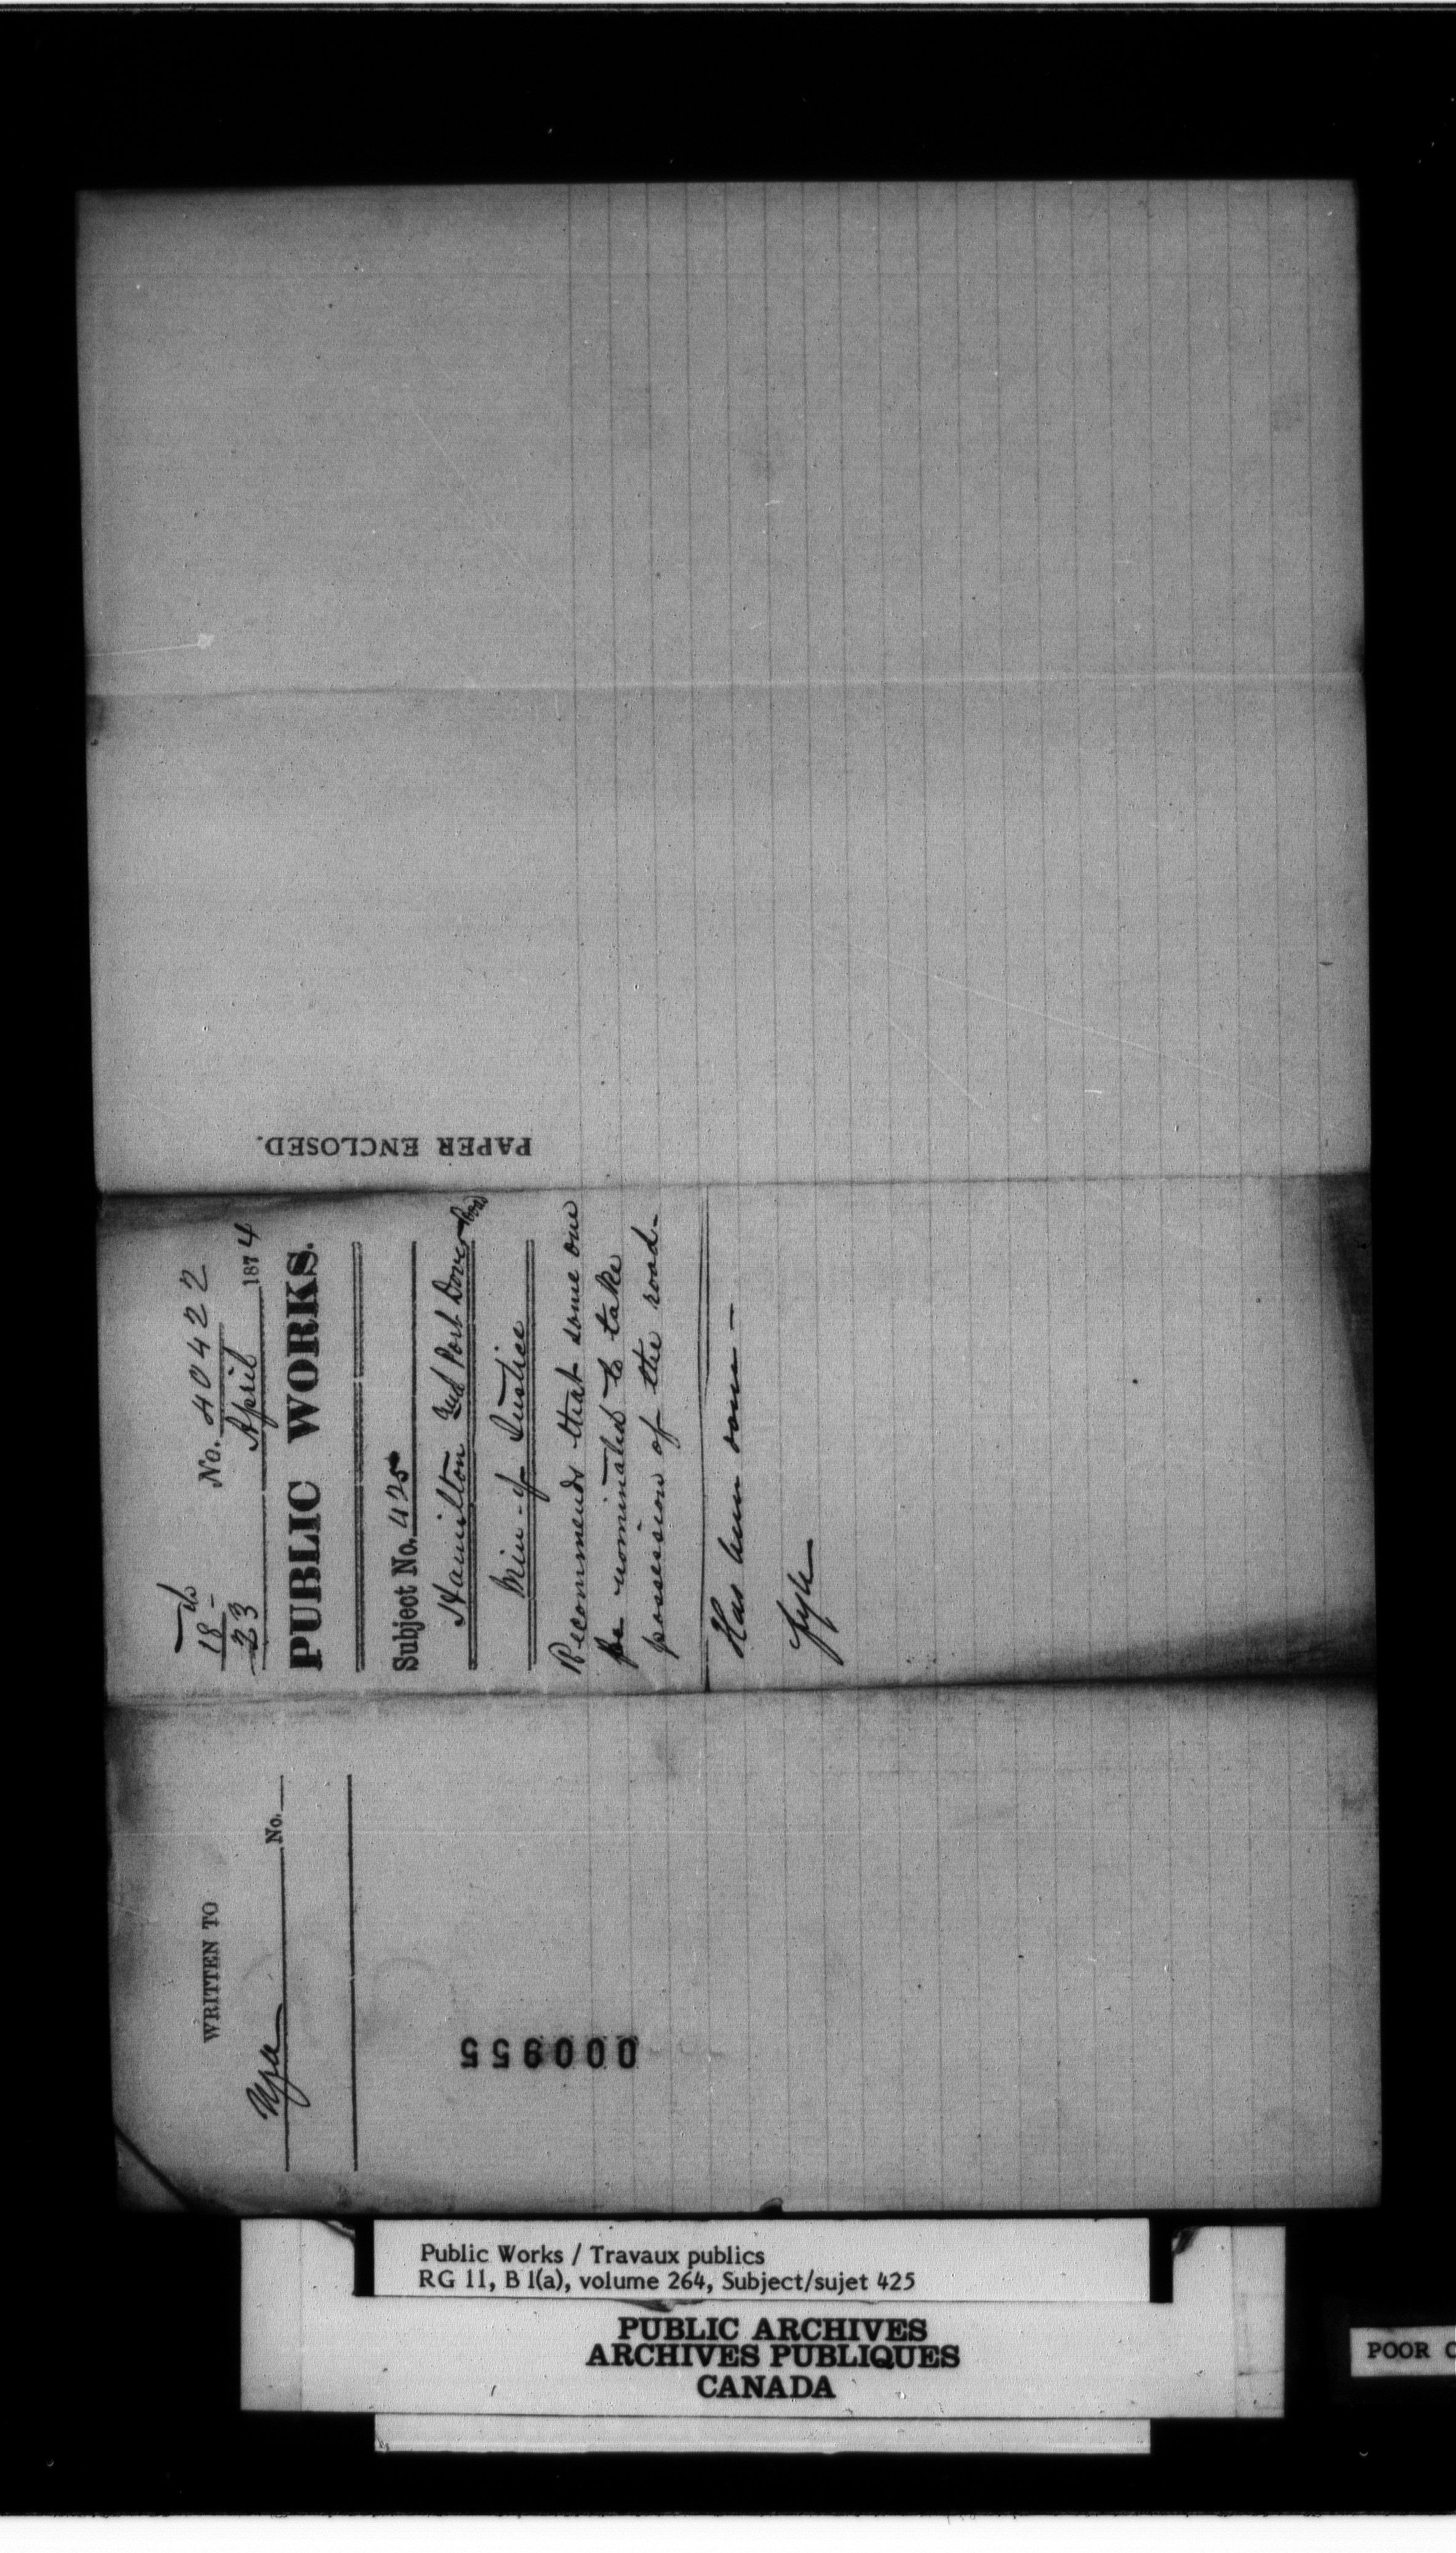 PAPER ENCLOSED.
No. 40422
18
23 April 1874
PUBLIC WORKS.
Subject No. 425
Hamilton and Port Dover Road
Min. of Justice
Recommends that some one
be nominated to take
possession of the road-
Has been done -
WRITTEN TO
No.
000955
Public Works / Travaux publics
RG 11, B 1(a), volume 264, Subject/sujet 425
PUBLIC ARCHIVES
ARCHIVES PUBLIQUES
CANADA
POOR